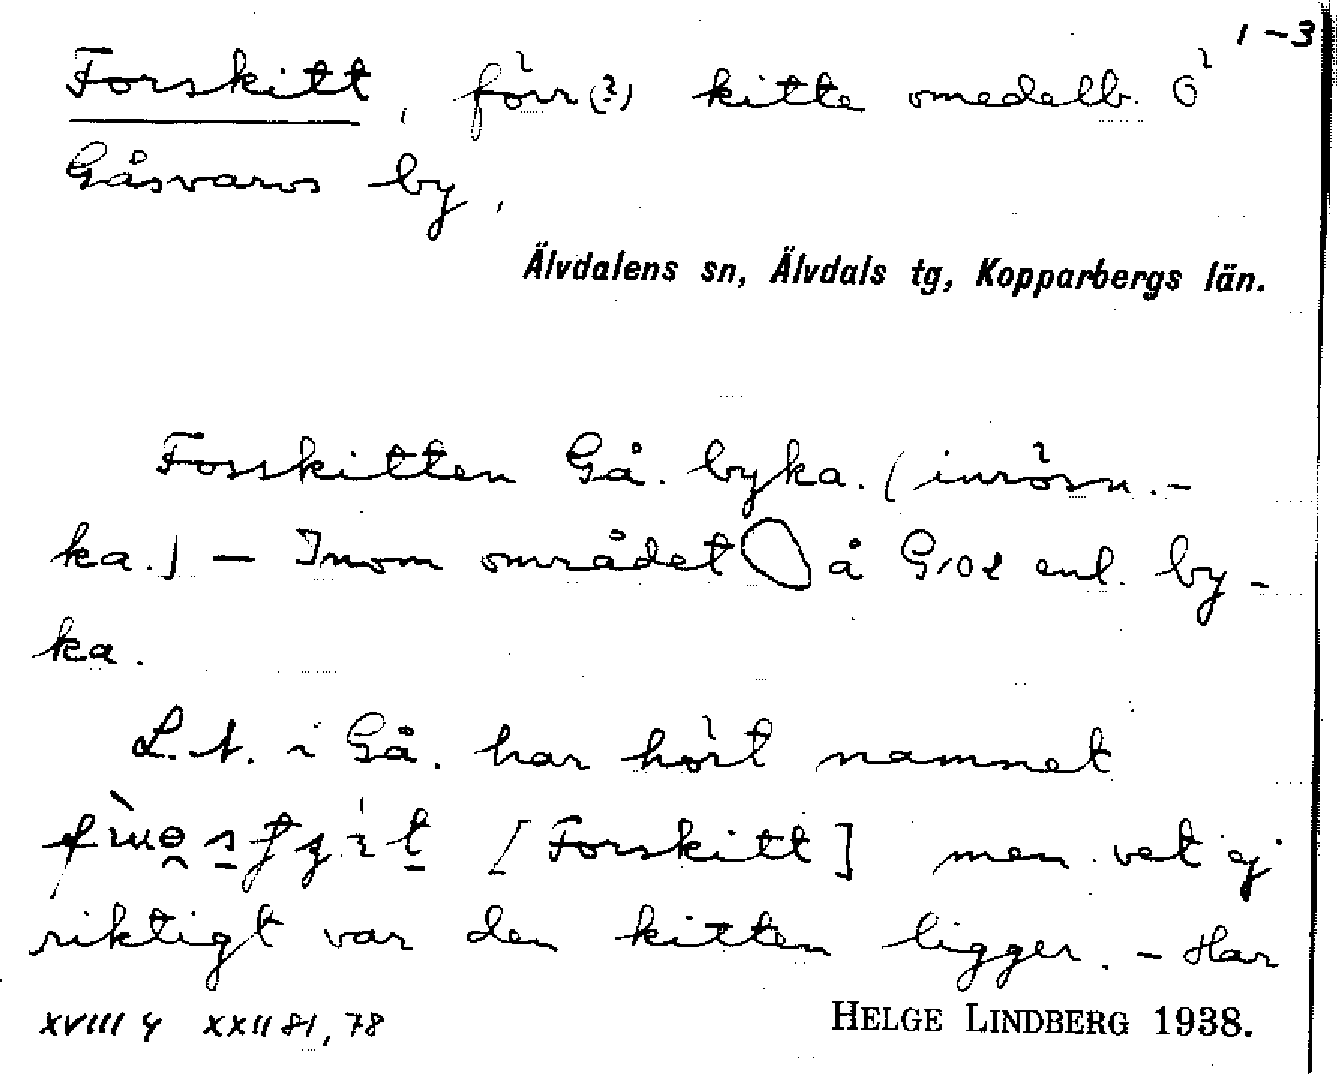 1-3
Forskitt, förr(?) kitte omedelb. Ö
Gåsvarvs by.
Älvdalens sn, Älvdals tg, Kopparbergs län.
Forskitten Gå. byka. (inrösn.-
ka.) — Inom området å G102 enl. by-
ka.
L.A. i Gå. har hört namnet
[Forskitt] men vet ej
riktigt var den kitten ligger. - Har
XVIII 4 XXII 81, 78
HELGE LINDBERG 1938.